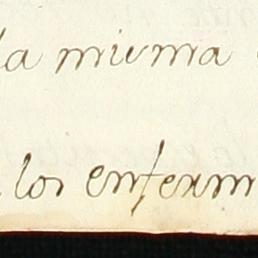 la misma
los enferm